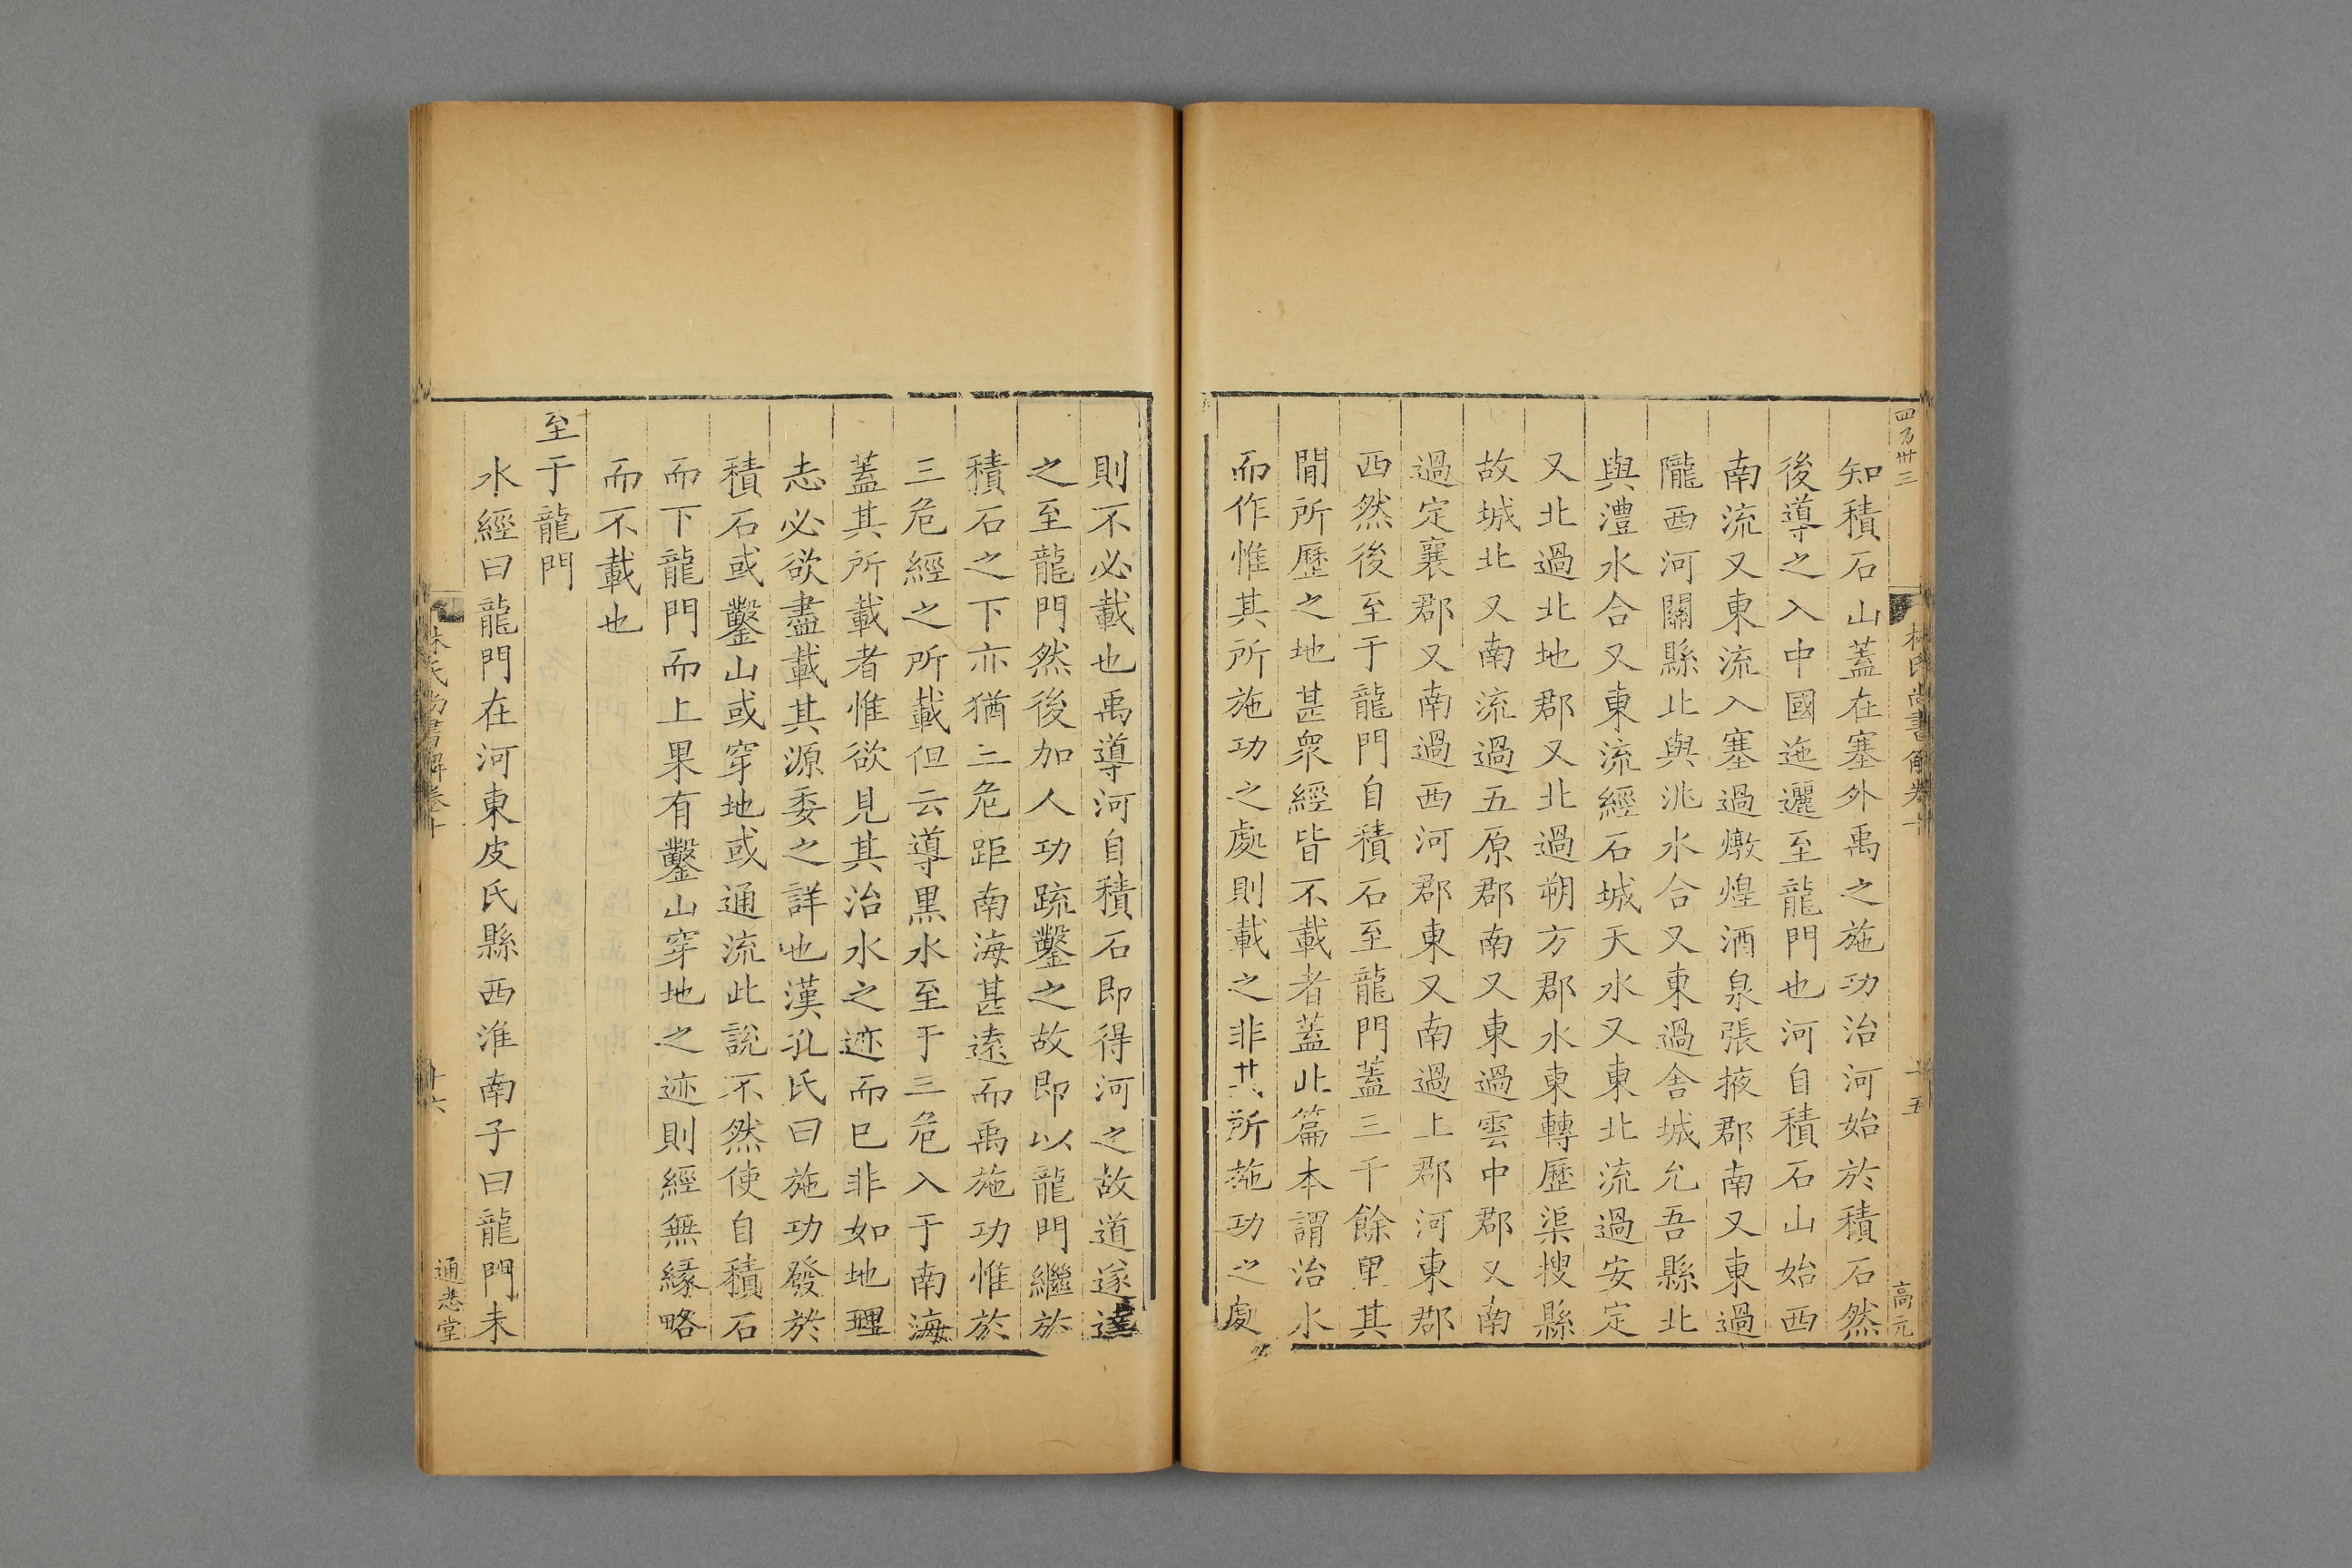 四百卅三
林氏尚書解卷十
十五
高元
知積石山蓋在塞外禹之施功治河始於積石然
後導之入中國迤邐至龍門也河自積石山始西
南流又東流入塞過燉煌酒泉張掖郡南又東過
隴西河關縣北與洮水合又東過舍城允吾縣北
與澧水合又東流經石城天水又東北流過安定
又北過北地郡又北過朔方郡水東轉歷渠搜縣
故城北又南流過五原郡南又東過雲中郡又南
過定襄郡又南過西河郡東又南過上郡河東郡
西然後至于龍門自積石至龍門蓋三千餘里其
間所歷之地甚衆經皆不載者蓋此篇本謂治水
而作惟其所施功之處則載之非其所施功之處
則不必載也禹導河自積石即得河之故道遂達
之至龍門然後加人功疏鑿之故即以龍門繼於
積石之下亦猶三危距南海甚遠而禹施功惟於
三危經之所載但云導黑水至于三危入于南海
蓋其所載者惟欲見其治水之迹而已非如地理
志必欲盡載其源委之詳也漢孔氏曰施功發於
積石或鑿山或穿地或通流此說不然使自積石
而下龍門而上果有鑿山穿地之迹則經無緣略
而不載也
至于龍門
水經曰龍門在河東皮氏縣西淮南子曰龍門未
林氏尚書解卷十
十六
通志堂